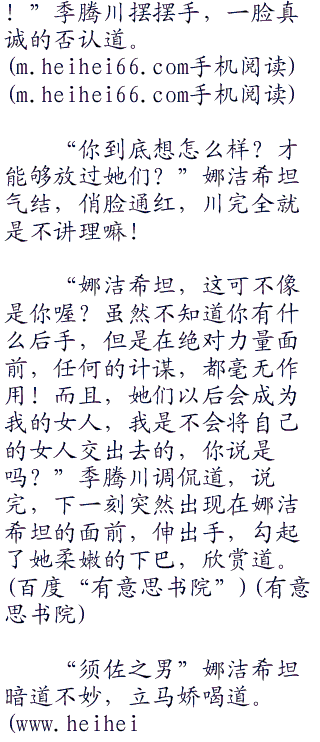 ！”季腾川摆摆手，一脸真
诚的否认道。
(m.heihei66.com手机阅读)
(m.heihei66.com手机阅读)
“你到底想怎么样？才
能够放过她们？”娜洁希坦
气结，俏脸通红，川完全就
是不讲理嘛！
“娜洁希坦，这可不像
是你喔？虽然不知道你有什
么后手，但是在绝对力量面
前，任何的计谋，都毫无作
用！而且，她们以后会成为
我的女人，我是不会将自己
的女人交出去的，你说是
吗？”季腾川调侃道，说
完，下一刻突然出现在娜洁
希坦的面前，伸出手，勾起
了她柔嫩的下巴，欣赏道。
(百度“有意思书院”)(有意
思书院)
“须佐之男”娜洁希坦
暗道不妙，立马娇喝道。
(www.heihei